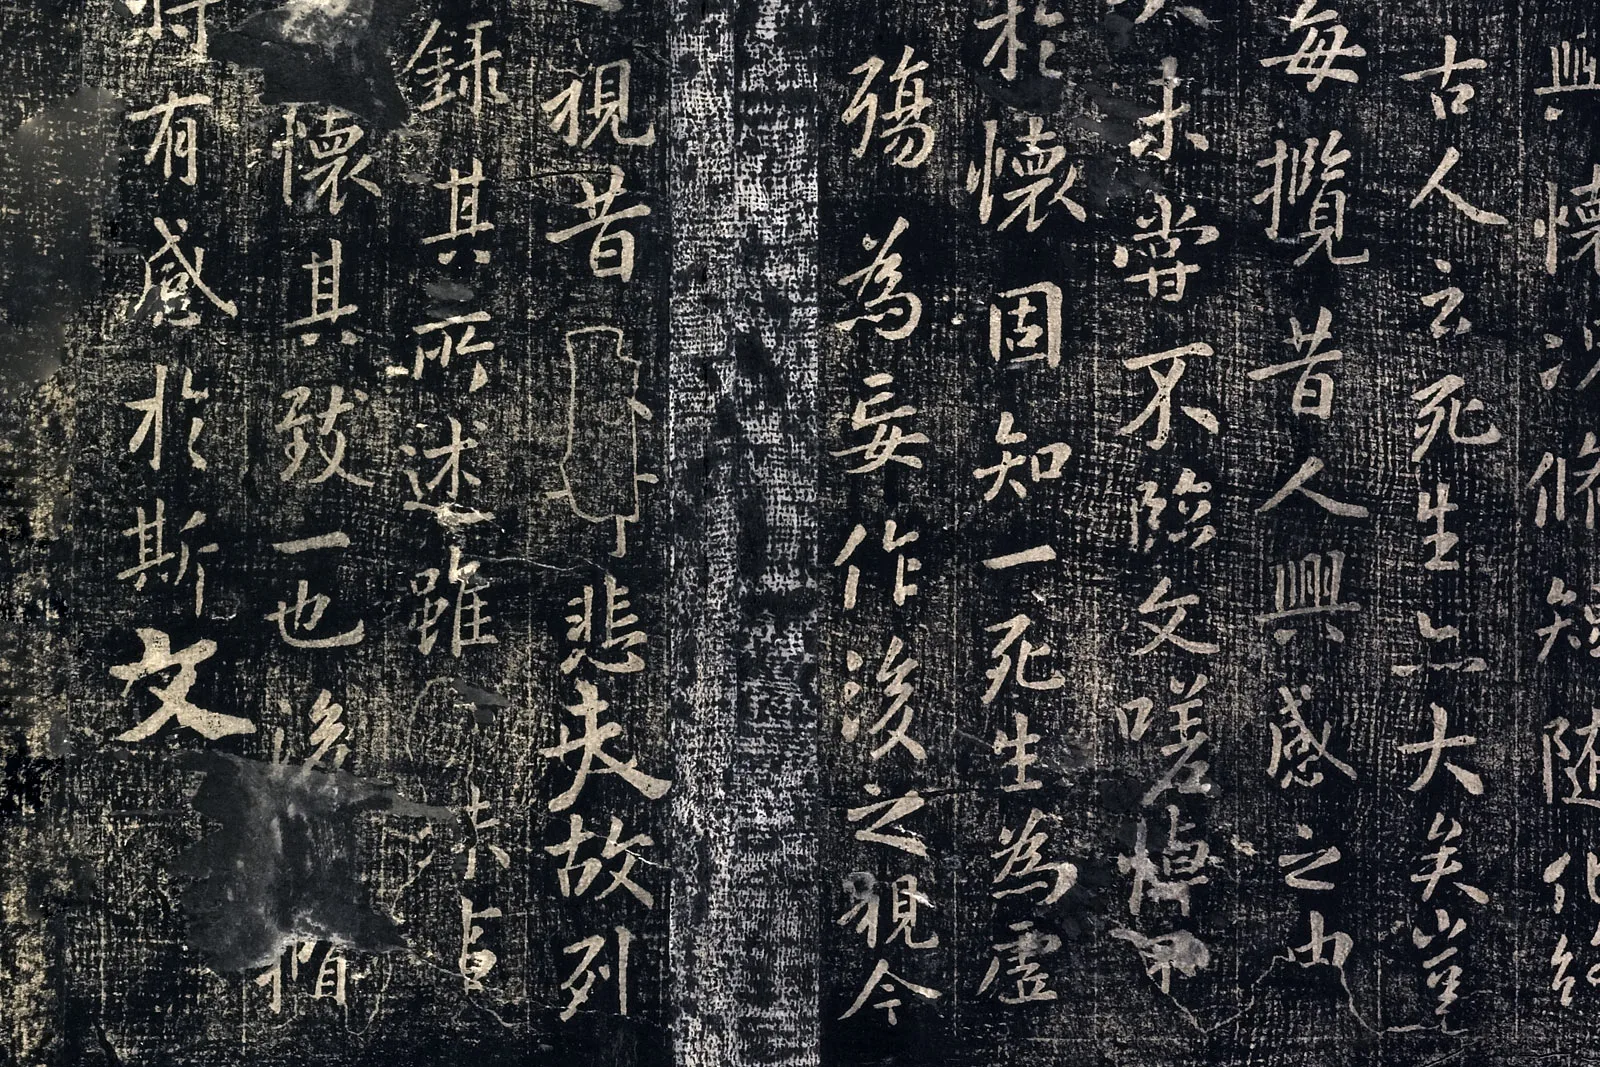 興懷況脩短随化終
古人云死生亦大矣豈
每攬昔人興感之由
未甞不臨文嗟悼不
於懷固知一死生為虛
殤為妄作後之視今
視昔悲夫故列
錄其所述雖
懷其致一也後
有感於斯文